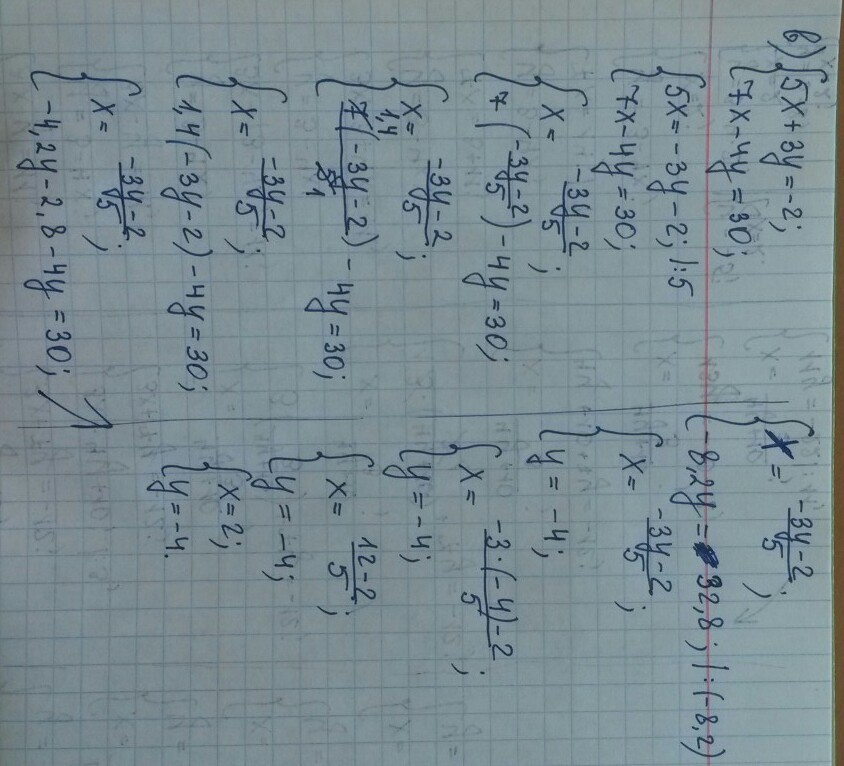 в) { 5x + 3y = -2;
{ 7x - 4y = 30;
{ 5x = -3y - 2; |:5
{ 7x - 4y = 30;
{ x = \frac{-3y-2}{5};
{ 7 (\frac{-3y-2}{5}) - 4y = 30;
{ x = \frac{-3y-2}{5};
{ 7 1,4 (\frac{-3y-2}{5 1}) - 4y = 30;
{ x = \frac{-3y-2}{5};
{ 1,4 (-3y-2) - 4y = 30;
{ x = \frac{-3y-2}{5};
{ -4,2y - 2,8 - 4y = 30;
{ x = \frac{-3y-2}{5};
{ -8,2y = 32,8; |:(-8,2)
{ x = \frac{-3y-2}{5};
{ y = -4;
{ x = \frac{-3·(-4)-2}{5};
{ y = -4;
{ x = \frac{12-2}{5};
{ y = -4;
{ x = 2;
{ y = -4.